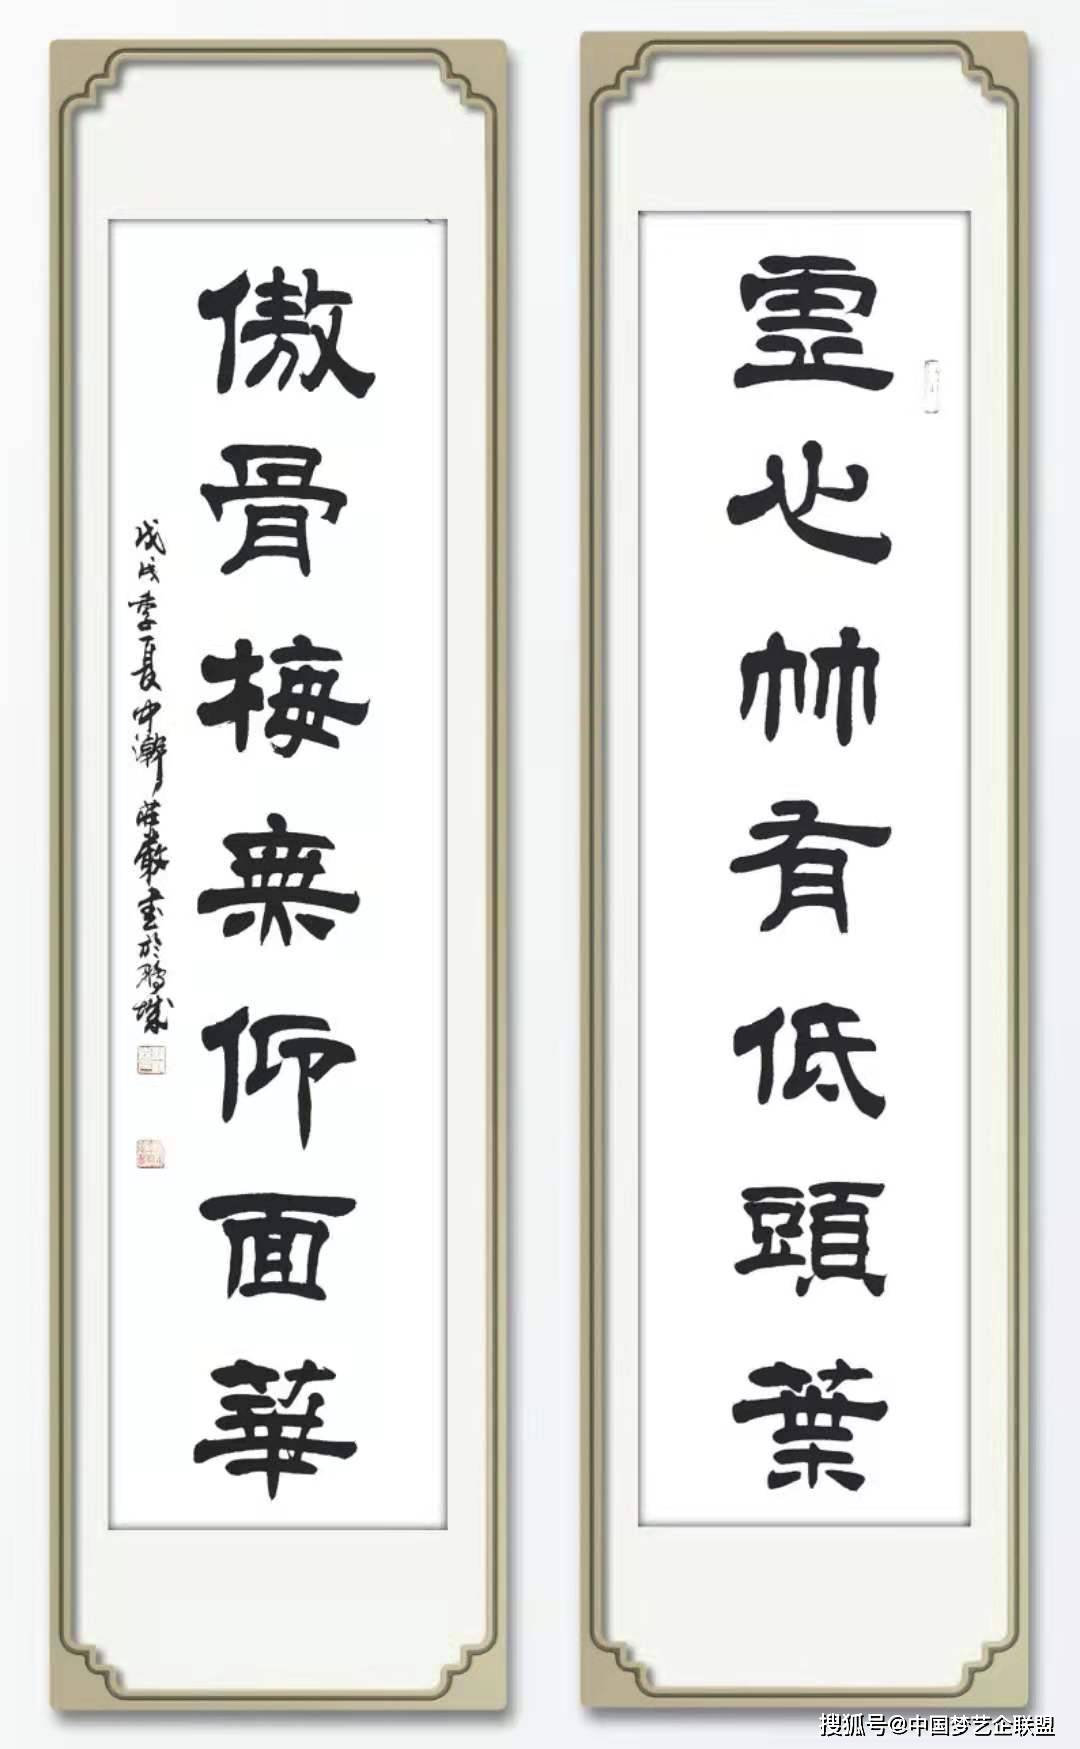 虛心竹有低頭葉
傲骨梅無仰面華
戊戌季夏中澣莊嚴書於鵬城
搜狐号@中国梦艺企联盟